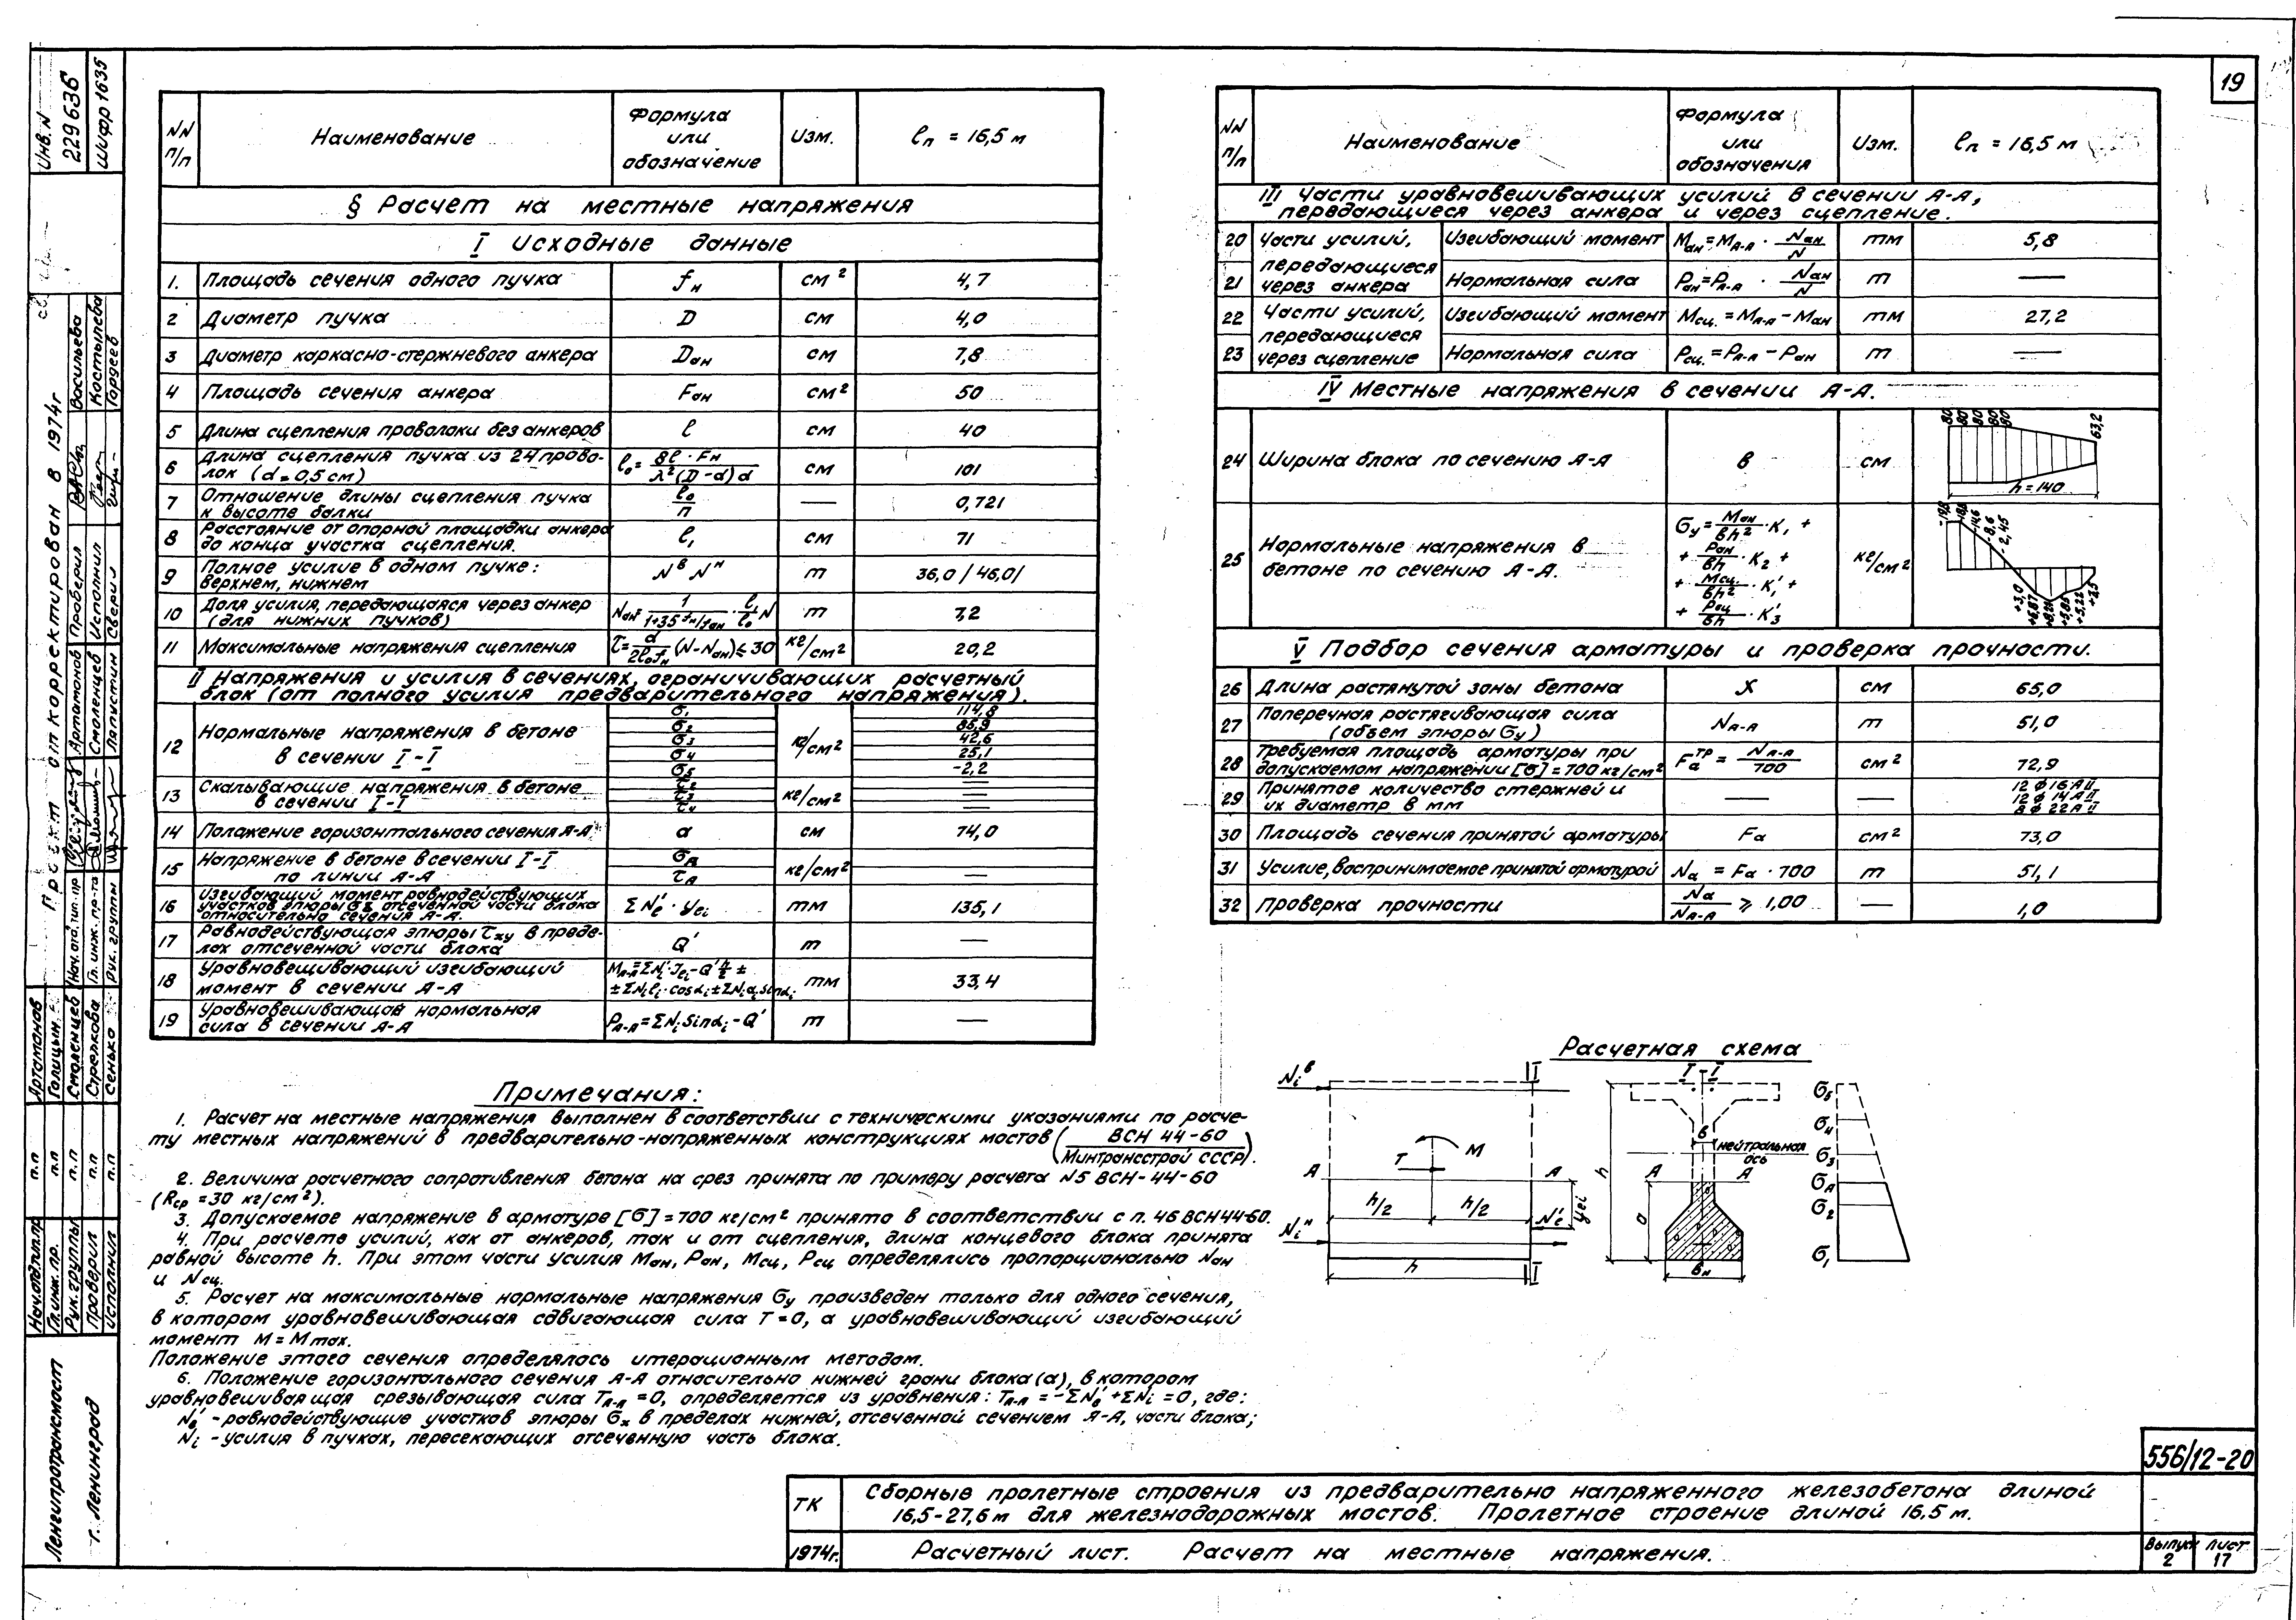 19
Инв. N
229636
Шифр 1635
Проект откорректирован в 1974г
Васильева
Костылева
Гордеев
Проверил
Исполнил
Сверил
Артамонов
Смоленцев
Лапустин
Нач. отд. тип. пр
Гл. инж. пр-та
Рук. группы
Артаманов
Голицын
Смоленцев
Стрелкова
Сенько
п.п
п.п
п.п
п.п
п.п
Нач. отд. тип. пр
Гл. инж. пр.
Рук. группы
Проверил
Исполнил
Ленгипротрансмост
г. Ленинград
NN п/п | Наименование | Формула или обозначение | Изм. | ℓп = 16,5 м
§ Расчет на местные напряжения
I Исходные данные
1. Площадь сечения одного пучка | fн | см² | 4,7
2 Диаметр пучка | D | см | 4,0
3 Диаметр каркасно-стержневого анкера | Dан | см | 7,8
4 Площадь сечения анкера | Fан | см² | 50
5 Длина сцепления проволоки без анкеров | ℓ | см | 40
6 Длина сцепления пучка из 24 прово-
лок (d=0,5 см) | ℓ₀ = 8ℓ·Fн / λ²(D-d)d | см | 101
7 Отношение длины сцепления пучка
к высоте балки | ℓ₀/п | — | 0,721
8 Расстояние от опорной площадки анкера
до конца участка сцепления. | ℓ₁ | см | 71
9 Полное усилие в одном пучке:
верхнем, нижнем | Nᴮ Nᴴ | т | 36,0 / 46,0/
10 Доля усилия, передающаяся через анкер
(для нижних пучков) | Nан = 1/(1+35 fн/fан) · ℓ₁/ℓ₀ N | т | 7,2
11 Максимальные напряжения сцепления | τ = d/(2ℓ₀fн) (N-Nан) ≤ 30 | кг/см² | 20,2
II Напряжения и усилия в сечениях, ограничивающих расчетный
блок (от полного усилия предварительного напряжения).
12 Нормальные напряжения в бетоне
в сечении I-I | кг/см²
σ₁ | 114,8
σ₂ | 85,9
σ₃ | 42,6
σ₄ | 25,1
σ₅ | -2,2
13 Скалывающие напряжения в бетоне
в сечении I-I | τ₂ τ₃ τ₄ | кг/см² | —
14 Положение горизонтального сечения А-А | a | см | 74,0
15 Напряжение в бетоне в сечении I-I
по линии А-А | σА τА | кг/см² | —
16 Изгибающий момент равнодействующих
участков эпюры σх отсеченной части блока
относительно сечения А-А. | ΣNб′·yбi | тм | 135,1
17 Равнодействующая эпюры τху в преде-
лах отсеченной части блока | Q′ | т | —
18 Уравновешивающий изгибающий
момент в сечении А-А | тм | 33,4
19 Уравновешивающая нормальная
сила в сечении А-А | PА-А = ΣNi Sinαi - Q′ | т | —
NN п/п | Наименование | Формула или обозначения | Изм. | ℓп = 16,5 м
III Части уравновешивающих усилий в сечении А-А,
передающиеся через анкера и через сцепление.
20 Части усилий, передающиеся через анкера | Изгибающий момент | Mан = MА-А · Nан/N | тм | 5,8
21 Нормальная сила | Pан = PА-А · Nан/N | т | —
22 Части усилий, передающиеся через сцепление | Изгибающий момент | Mсц. = MА-А - Mан | тм | 27,2
23 Нормальная сила | Pсц. = PА-А - Pан | т | —
IV Местные напряжения в сечении А-А.
24 Ширина блока по сечению А-А | в | см
80 80 80 80 80 63,2
h = 140
25 Нормальные напряжения в
бетоне по сечению А-А. | σу = Mан/вh² · K₁ + Pан/вh · K₂ + Mсц./вh² · K₁′ + Pсц/вh · K₃′ | кг/см²
-14,6 -8,6 -2,45
+3,0 +6,87 +5,85 +5,22
V Подбор сечения арматуры и проверка прочности.
26 Длина растянутой зоны бетона | X | см | 65,0
27 Поперечная растягивающая сила
(объем эпюры σу) | NА-А | т | 51,0
28 Требуемая площадь арматуры при
допускаемом напряжении [σ]=700 кг/см² | Faᵀᴾ = NА-А/700 | см² | 72,9
29 Принятое количество стержней и
их диаметр в мм | — | — | 12 ϕ 16 А II
12 ϕ 14 А II
8 ϕ 22 А II
30 Площадь сечения принятой арматуры | Fa | см² | 73,0
31 Усилие, воспринимаемое принятой арматурой | Na = Fa · 700 | т | 51,1
32 Проверка прочности | Na/NА-А ⩾ 1,00 | — | 1,0
Примечания:
1. Расчет на местные напряжения выполнен в соответствии с техническими указаниями по расче-
ту местных напряжений в предварительно-напряженных конструкциях мостов (ВСН 44-60 / Минтрансстрой СССР).
2. Величина расчетного сопротивления бетона на срез принята по примеру расчета N5 ВСН-44-60
(Rср = 30 кг/см²).
3. Допускаемое напряжение в арматуре [σ] = 700 кг/см² принято в соответствии с п. 46 ВСН 44-60.
4. При расчете усилий, как от анкеров, так и от сцепления, длина концевого блока принята
равной высоте h. При этом части усилия Mан, Pан, Mсц, Pсц определялись пропорционально Nан
и Nсц.
5. Расчет на максимальные нормальные напряжения σу произведен только для одного сечения,
в котором уравновешивающая сдвигающая сила T=0, а уравновешивающий изгибающий
момент M=Mmax.
Положение этого сечения определялось итерационным методом.
6. Положение горизонтального сечения А-А относительно нижней грани блока (а), в котором
уравновешивающая срезывающая сила TА-А = 0, определяется из уравнения: TА-А = -ΣNб′ + ΣNi = 0, где:
Nб′ - равнодействующие участков эпюры σх в пределах нижней, отсеченной сечением А-А, части блока;
Ni - усилия в пучках, пересекающих отсеченную часть блока.
Расчетная схема
Niᴮ I
M
T
А А
h/2 h/2
Niᴴ Nб′ yбi
h I
I I
h
в нейтральная ось
А А
a
вн
σ₅
σ₄
σ₃
σА
σ₂
σ₁
556/12-20
ТК
Сборные пролетные строения из предварительно напряженного железобетона длиной
16,5-27,6 м для железнодорожных мостов. Пролетное строение длиной 16,5 м.
1974г.
Расчетный лист. Расчет на местные напряжения.
Выпуск 2
Лист 17